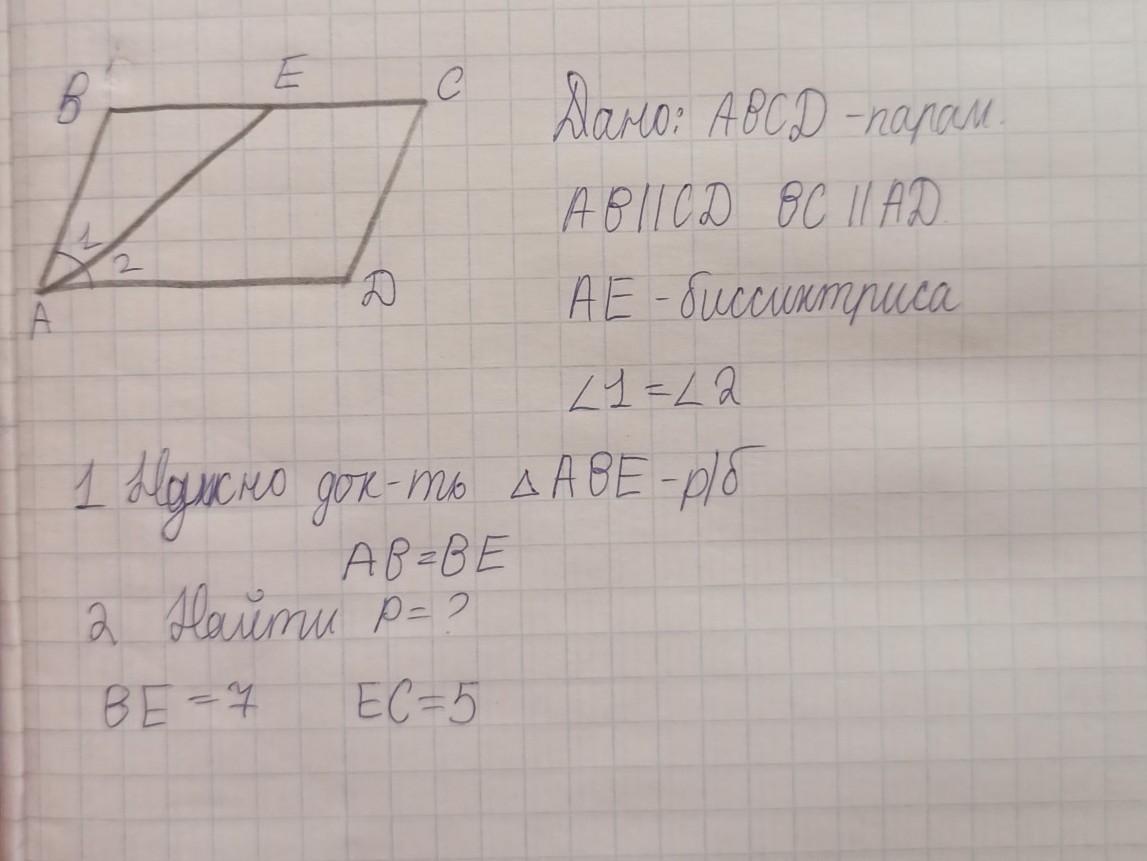 B E C
1
2
A D
Дано: ABCD - парам.
AB || CD BC || AD
AE - биссиктриса
∠1 = ∠2
1 Нужно док-ть △ ABE - р/б
AB = BE
2 Найти P = ?
BE = 7 EC = 5